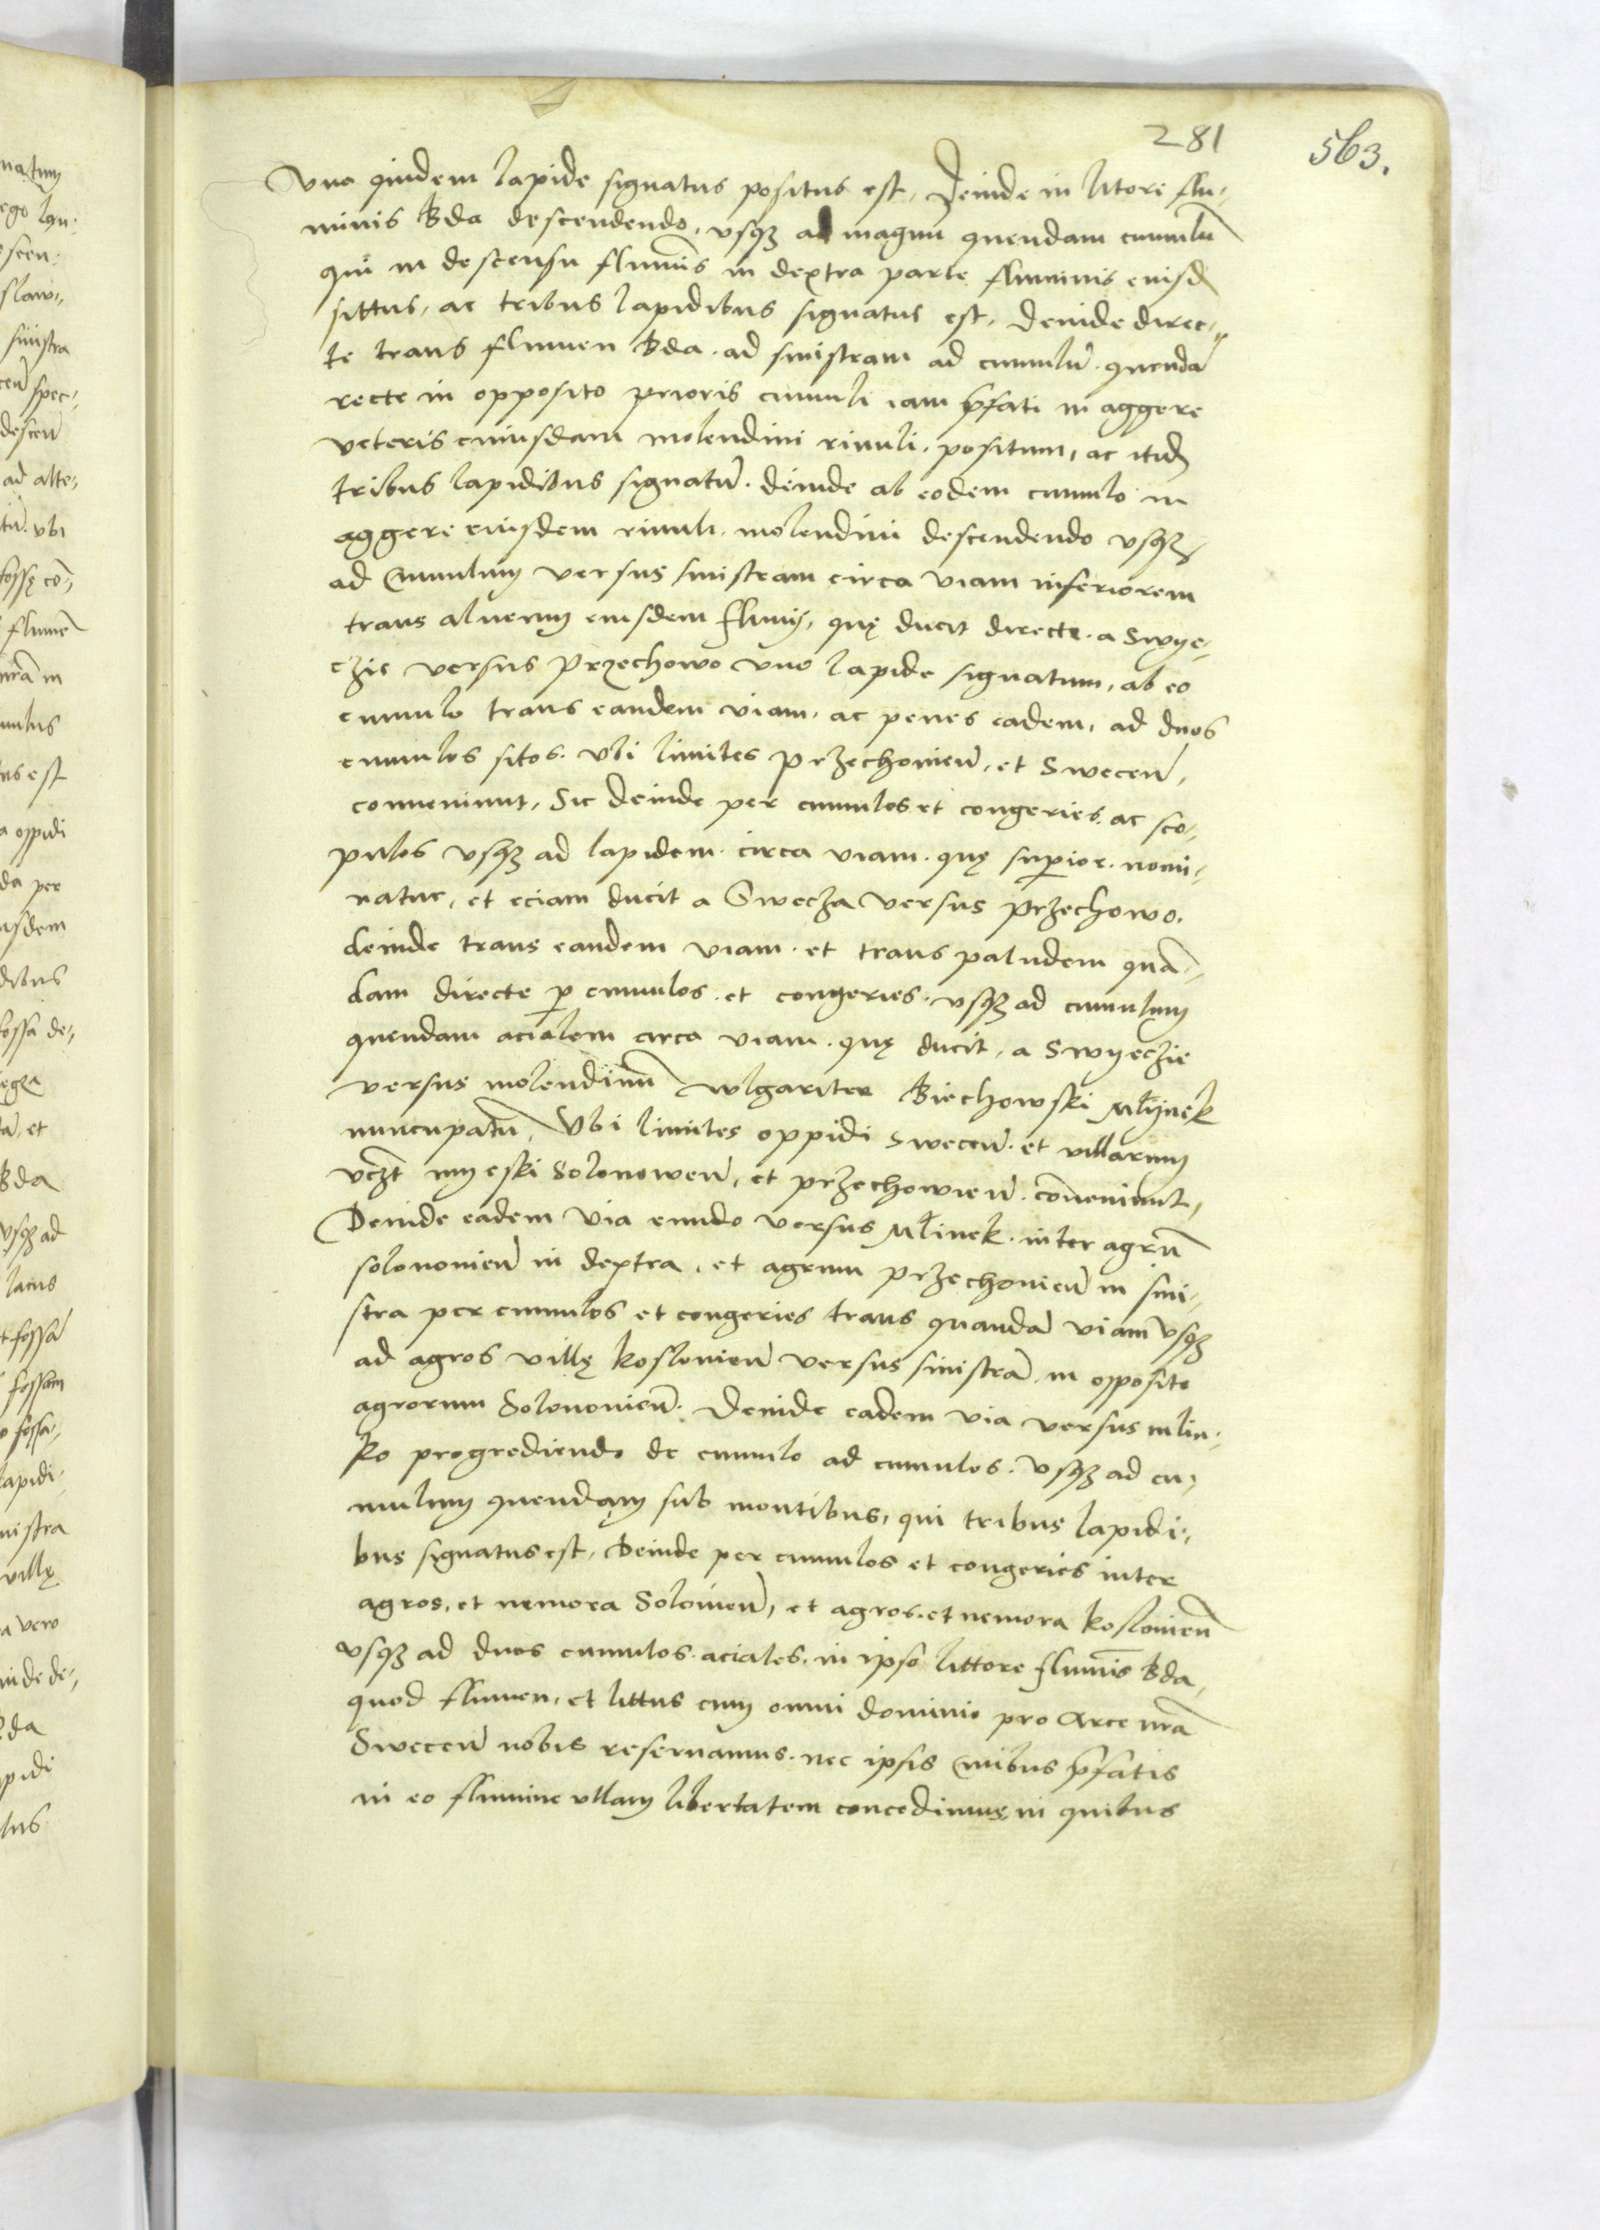 281
563.
Vno quidem lapide signatus positus est, Deinde in litore flu-
minis Bda descendendo, vsqz ad magnu quendam cumulu
qui in descensu fluminis in dextra parte fluminis eiusd
sittus, ac tribus lapidibus signatus est, Deinde direc-
te trans flumen Bda ad sinistram ad cumulu quenda
recte in opposito prioris cumuli iam pfati in aggere
veteris cuiusdam molendini riuuli positum, ac itid
tribus lapidibus signatu. deinde ab eodem cumulo in
aggere eiusdem riuuli molendini descendendo vsqz
ad Cumulum versus sinistram circa viam inferiorem
trans alueum eiusdem fluuij, quę ducit directe a Swye-
czie versus Przechowo vno lapide signatum, ab eo
cumulo trans eandem viam, ac penes eadem, ad duos
cumulos sitos. Vbi limites Przechouien, et Swecen,
conueniunt, Sic deinde per cumulos et congeries, ac sco-
pulos vsqz ad lapidem circa viam quę superior nomi-
natur, et eciam ducit a Swecza versus Przechowo.
deinde trans eandem viam et trans paludem qua-
dam directe p cumulos et congeries vsqz ad cumulum
quendam acialem circa viam quę ducit, a Swyeczie
versus molendinu wlgariter Biechowski Młÿnek
nuncupatu, Vbi limites oppidi Swecen et villarum
vczt Solonowen, et przechowien conueniunt,
Deinde eadem via eundo versus Młinek inter agru
solonouien in dextra, et agrum Przechouien in sini-
stra per cumulos et congeries trans quanda viam vsqz
ad agros villę koslouien versus sinistra in opposito
agrorum Solonouien. Deinde eadem via versus mlin-
ko progrediendo de cumulo ad cumulos vsqz ad cu-
mulum quendam sub montibus, qui tribus lapidi-
bus signatus est, Deinde per cumulos et congeries inter
agros, et nemora Solouien, et agros et nemora koslouien
vsqz ad duos cumulos aciales, in ipso littore fluminis Bda,
quod flumen, et littus cum omni dominio pro Arce nra
Swecen nobis reseruamus, nec ipsis Ciuibus pfatis
in eo flumine vllam libertatem concedimus, in quibus